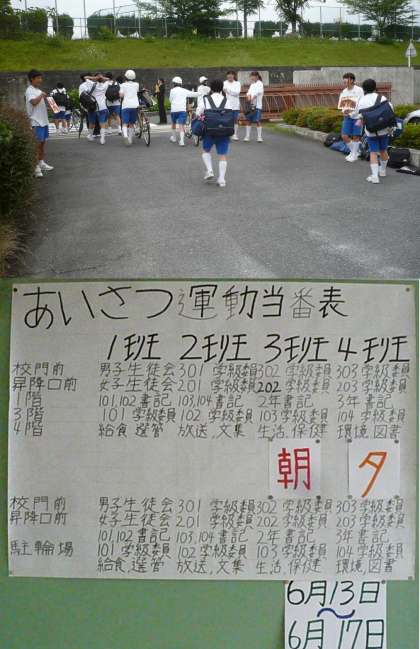 あいさつ運動当番表
1班 2班 3班 4班
校門前 男子生徒会 301 学級委員 302 学級委員 303 学級委員
昇降口前 女子生徒会 201 学級委員 202 学級委員 203 学級委員
1階 101,102 書記 103,104 書記 2年書記 3年書記
3階 101 学級委員 102 学級委員 103 学級委員 104 学級委員
4階 給食、選管 放送、文集 生活、保健 環境、図書
朝 夕
校門前 男子生徒会 301 学級委員 302 学級委員 303 学級委員
昇降口前 女子生徒会 201 学級委員 202 学級委員 203 学級委員
101,102 書記 103,104 書記 2年書記 3年書記
駐輪場 101 学級委員 102 学級委員 103 学級委員 104 学級委員
給食、選管 放送、文集 生活、保健 環境、図書
6月13日
～
6月17日